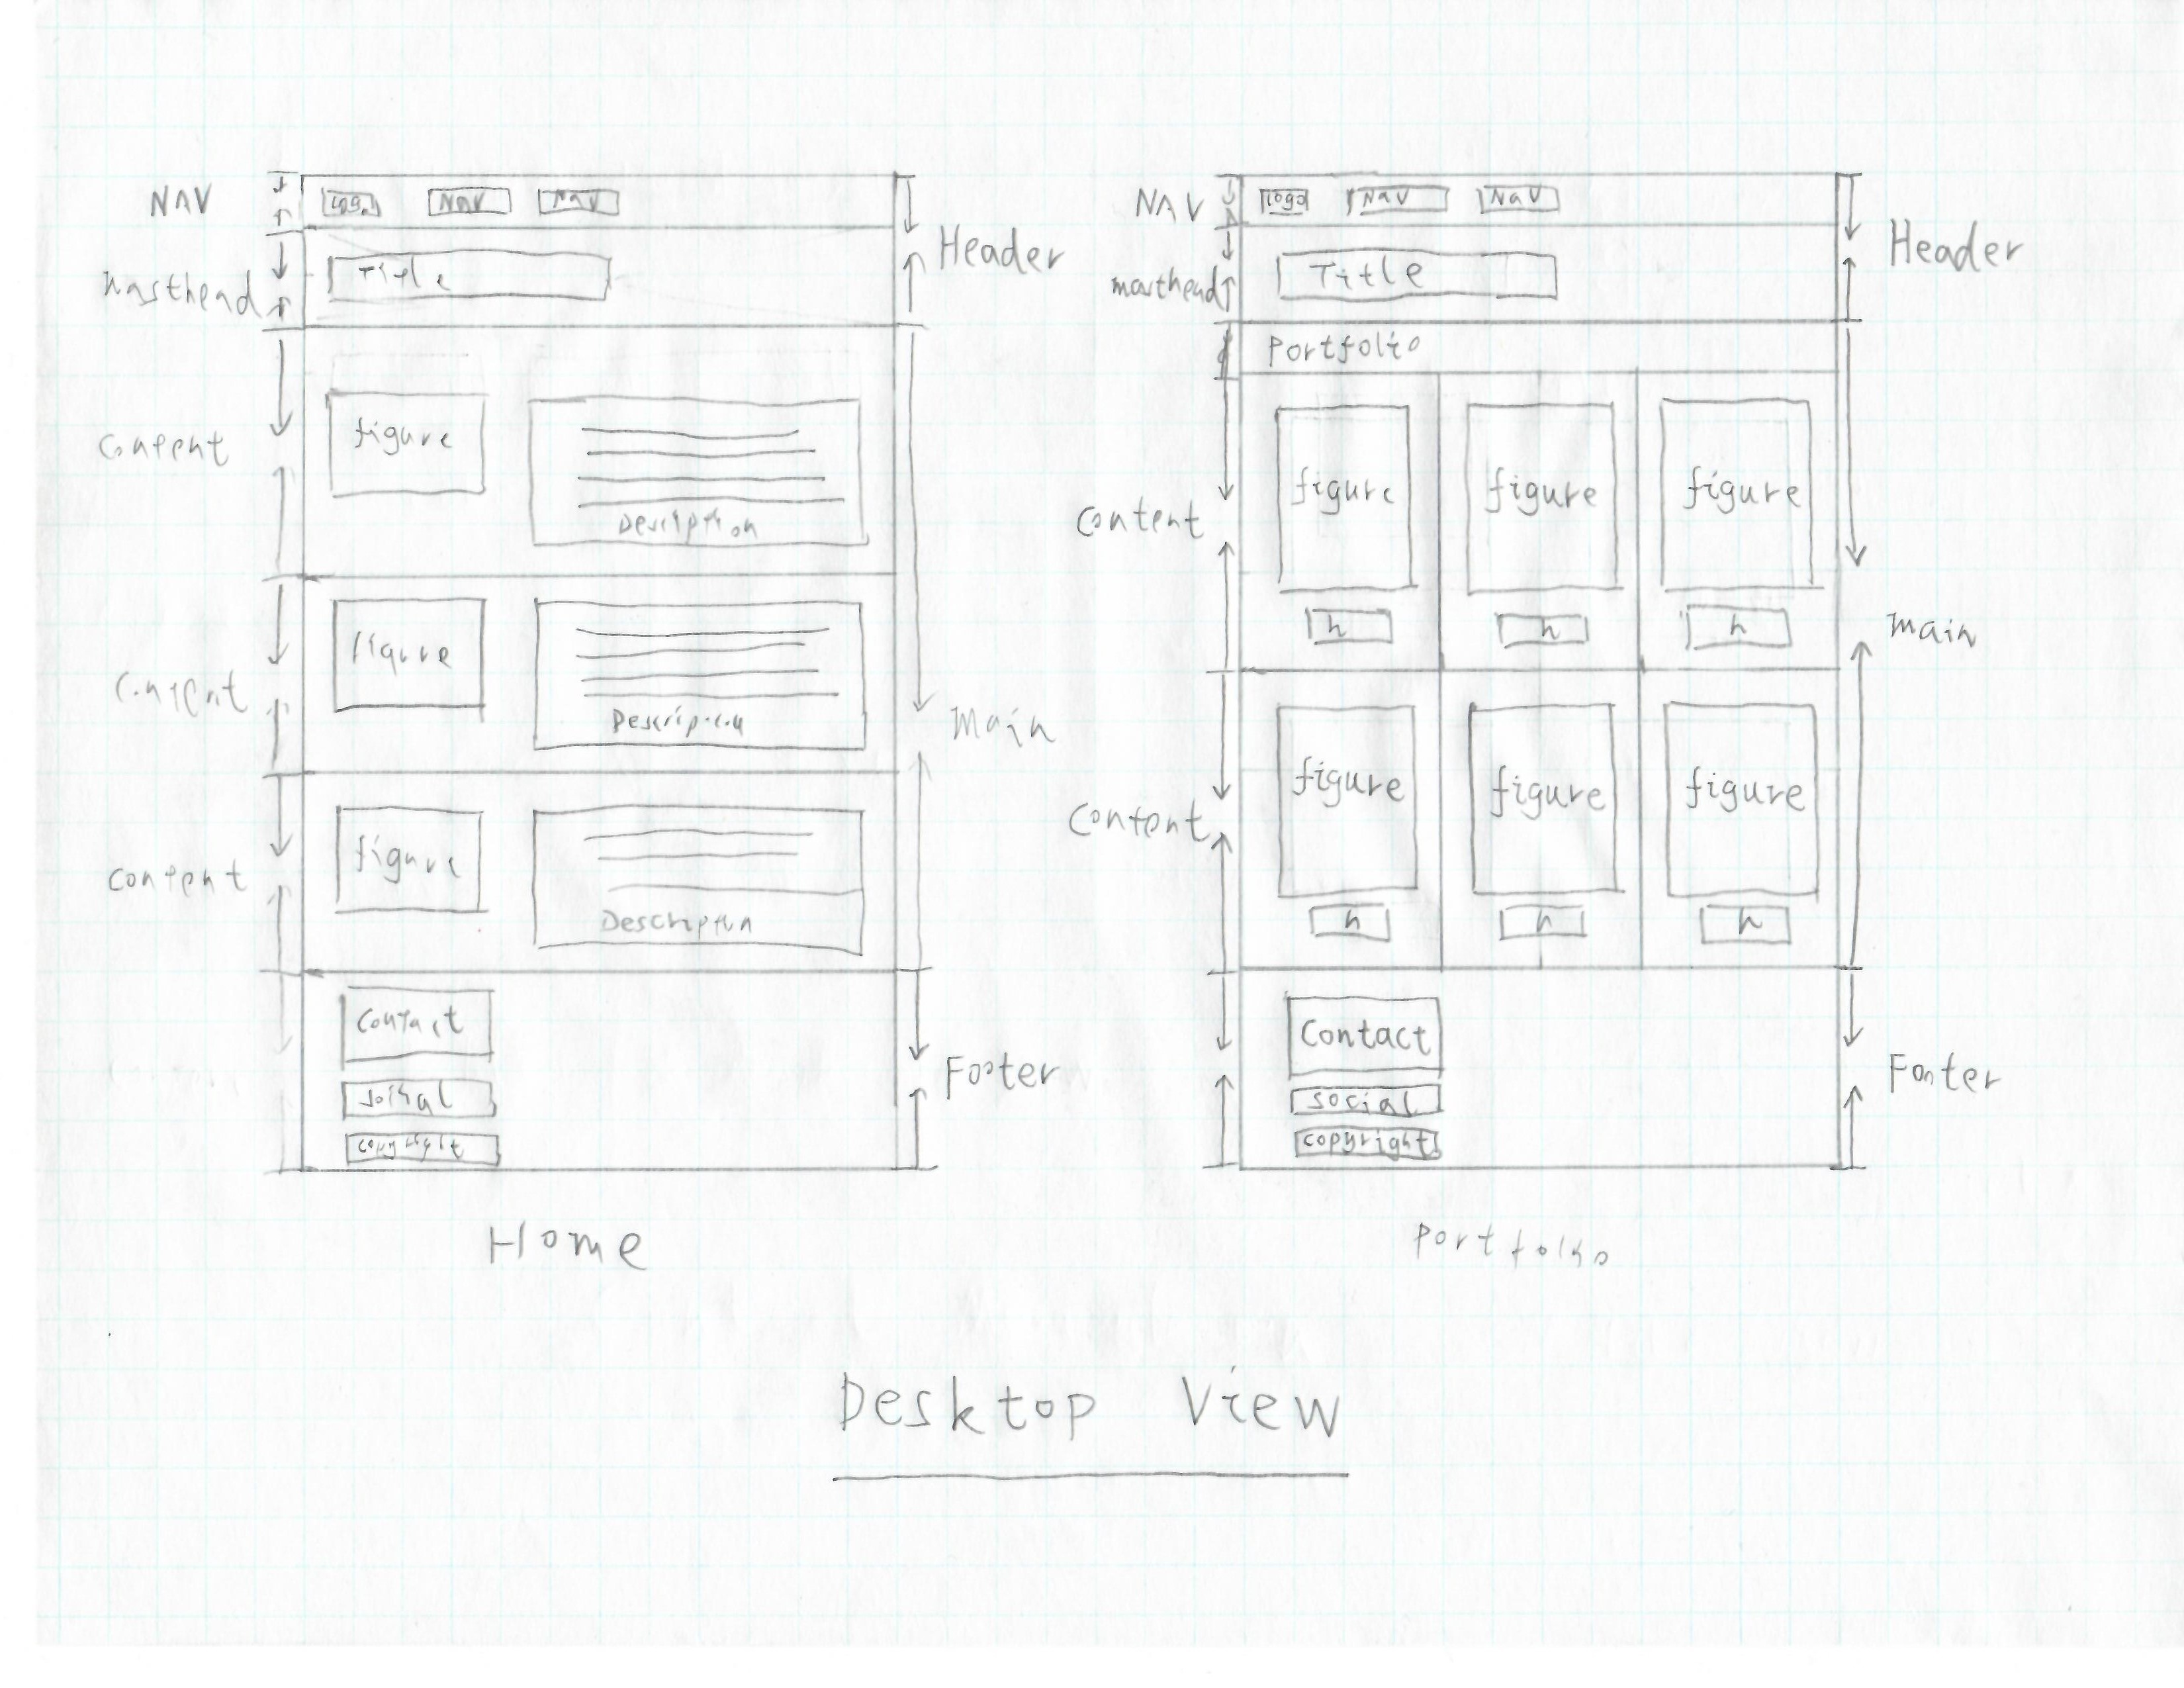 NAV
Logo
NAV
NAV
Header
Masthead
Title
Content
figure
Description
Content
figure
Description
Main
Content
figure
Description
Contact
soical
copyright
Footer
Home
NAV
Logo
NaV
NaV
Header
masthead
Title
Portfolio
Content
figure
figure
figure
h
h
h
Main
Content
figure
figure
figure
h
h
h
Contact
social
copyright
Footer
Portfolio
Desktop View